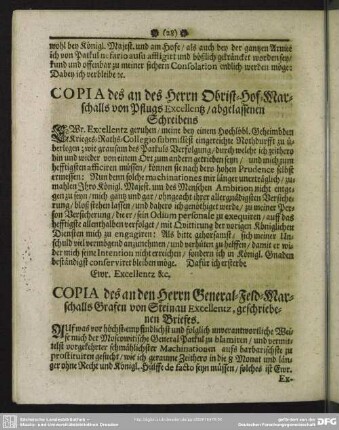 (28)
wohl bey Königl. Majest. und am Hofe / als auch bey der gantzen Armee
ich von Patkul nefario ausu affligirt und bößlich gekräncket worden sey /
kund und offenbar zu meiner sichern Consolation endlich werden möge:
Dabey ich verbleibe ꝛc.
COPIA des an des Herrn Obrist-Hof-Mar-
schalls von Pflugs Excellentz / abgelassenen
Schreibens
EWr. Excellentz geruhen / meine bey einem Hochlöbl. Geheimbden
Krieges-Raths-Collegio submissest eingereichte Nothdurfft zu
überlegen; wie grausam des Patkuls Verfolgung / durch welche ich zeithero
hin und wieder von einem Ort zum andern getrieben seyn / und mich zum
hefftigsten afficiren müssen / können sie nach dero hohen Prudence selbst
ermessen: Nun denn solche machinationes mir länger unerträglich / zu-
mahlen Ihro Königl. Majest. um des Menschen Ambition nicht entge-
gen zu seyn / mich gantz und gar / ohngeacht ihrer allergnädigsten Versiche-
rung / bloß stehen lassen / und dahero ich genöthiget werde / zu meiner Per-
son Versicherung / die er / sein Odium personale zu exequiren / auff das
hefftigste allenthalben verfolget / mit Quittirung der vorigen Königlichen
Diensten mich zu engagiren: Als bitte gehorsamst / sich meiner Un-
schuld viel vermögend anzunehmen / und verhüten zu helffen / damit er wi-
der mich seine Intention nicht erreichen / sondern ich in Königl. Gnaden
beständigst conserviret bleiben möge. Dafür ich ersterbe
Ewr. Excellentz &c.
COPIA des an den Herrn General-Feld-Mar-
schalls Grafen von Steinau Excellentz, geschriebe-
nen Brieses.
Auf was vor höchstempfindlichst und folglich unverantwortliche Wei-
se mich der Moscowitische General Patkul zu blamiren / und vermit-
telst vorgekehrter schmählichster Machinationen aufs barbarischste zu
prostituiren gesucht / wie ich geraume Zeithero in die 8 Monat und län-
ger ohne Recht und Königl. Hülffe de facto seyn müssen / solches ist Ewr.
Ex-